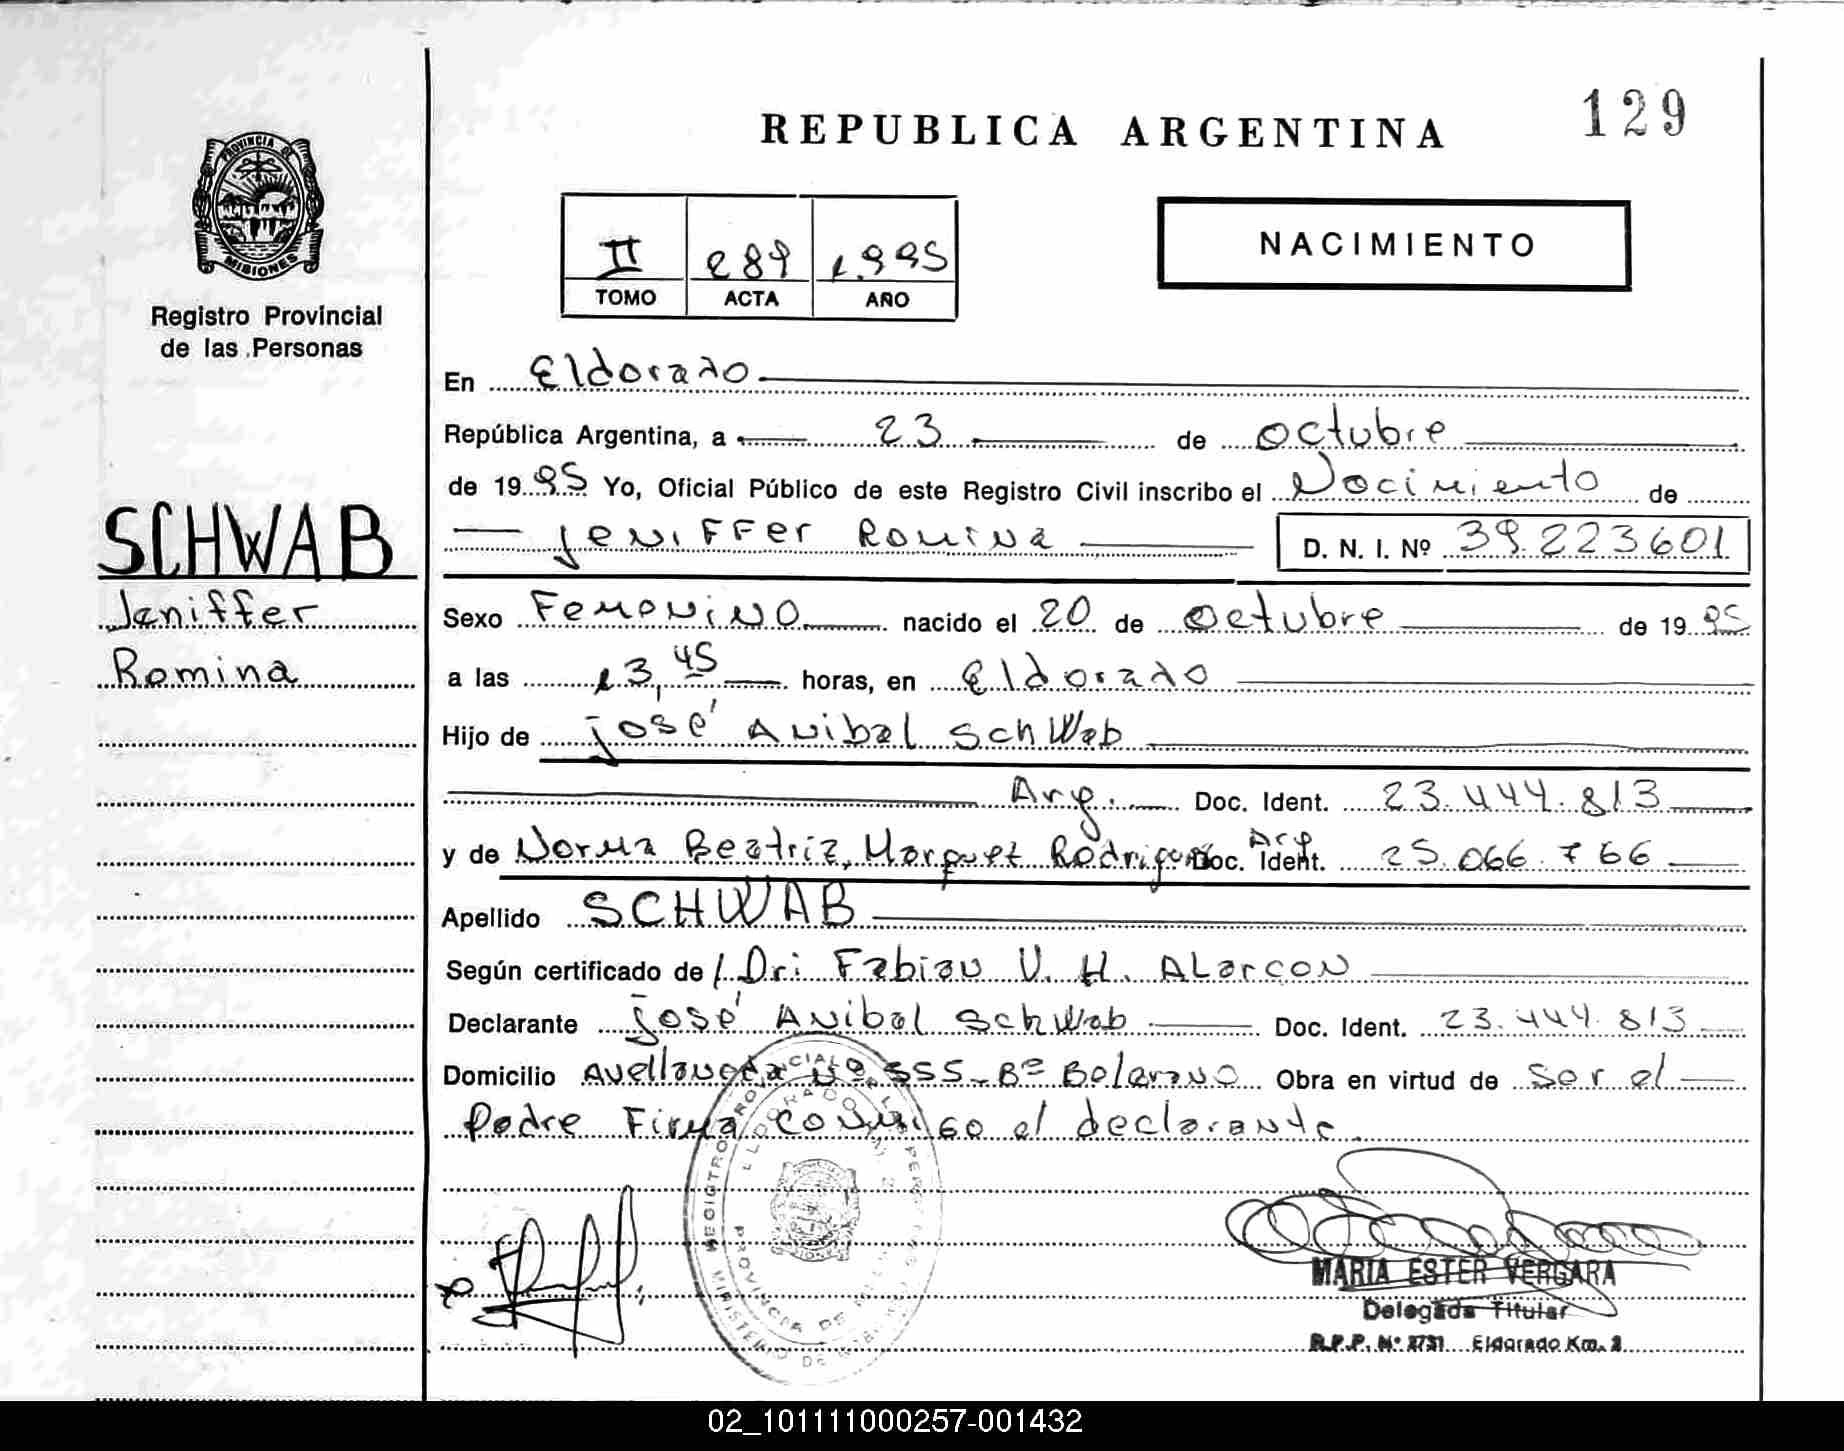 129
REPUBLICA ARGENTINA
PROVINCIA DE
MISIONES
Registro Provincial
de las Personas
NACIMIENTO
II 289 1.995
TOMO ACTA AÑO
En Eldorado
República Argentina, a 23 de octubre
de 1995 Yo, Oficial Público de este Registro Civil inscribo el Nacimiento de
Jeniffer Romina D. N. I. Nº 39.223601
SCHWAB
Jeniffer
Romina
Sexo Femenino nacido el 20 de octubre de 1995
a las 13,45 horas, en Eldorado
Hijo de José Anibal Schwab
Arg. Doc. Ident. 23.444.813
y de Norma Beatriz, Marquet Rodriguez Arg Doc. Ident. 25.066.766
Apellido SCHWAB
Según certificado de / Dr: Fabian V. H. Alarcon
Declarante José Anibal Schwab Doc. Ident. 23.444.813
Domicilio Avellaneda Nº 555-Bº Belgrano Obra en virtud de Ser el
Padre Firma conmigo el declarante
PROVINCIA DE
MARIA ESTER VERGARA
Delegada Titular
R.P.P. Nº 2731 Eldorado Km. 2
02_101111000257-001432